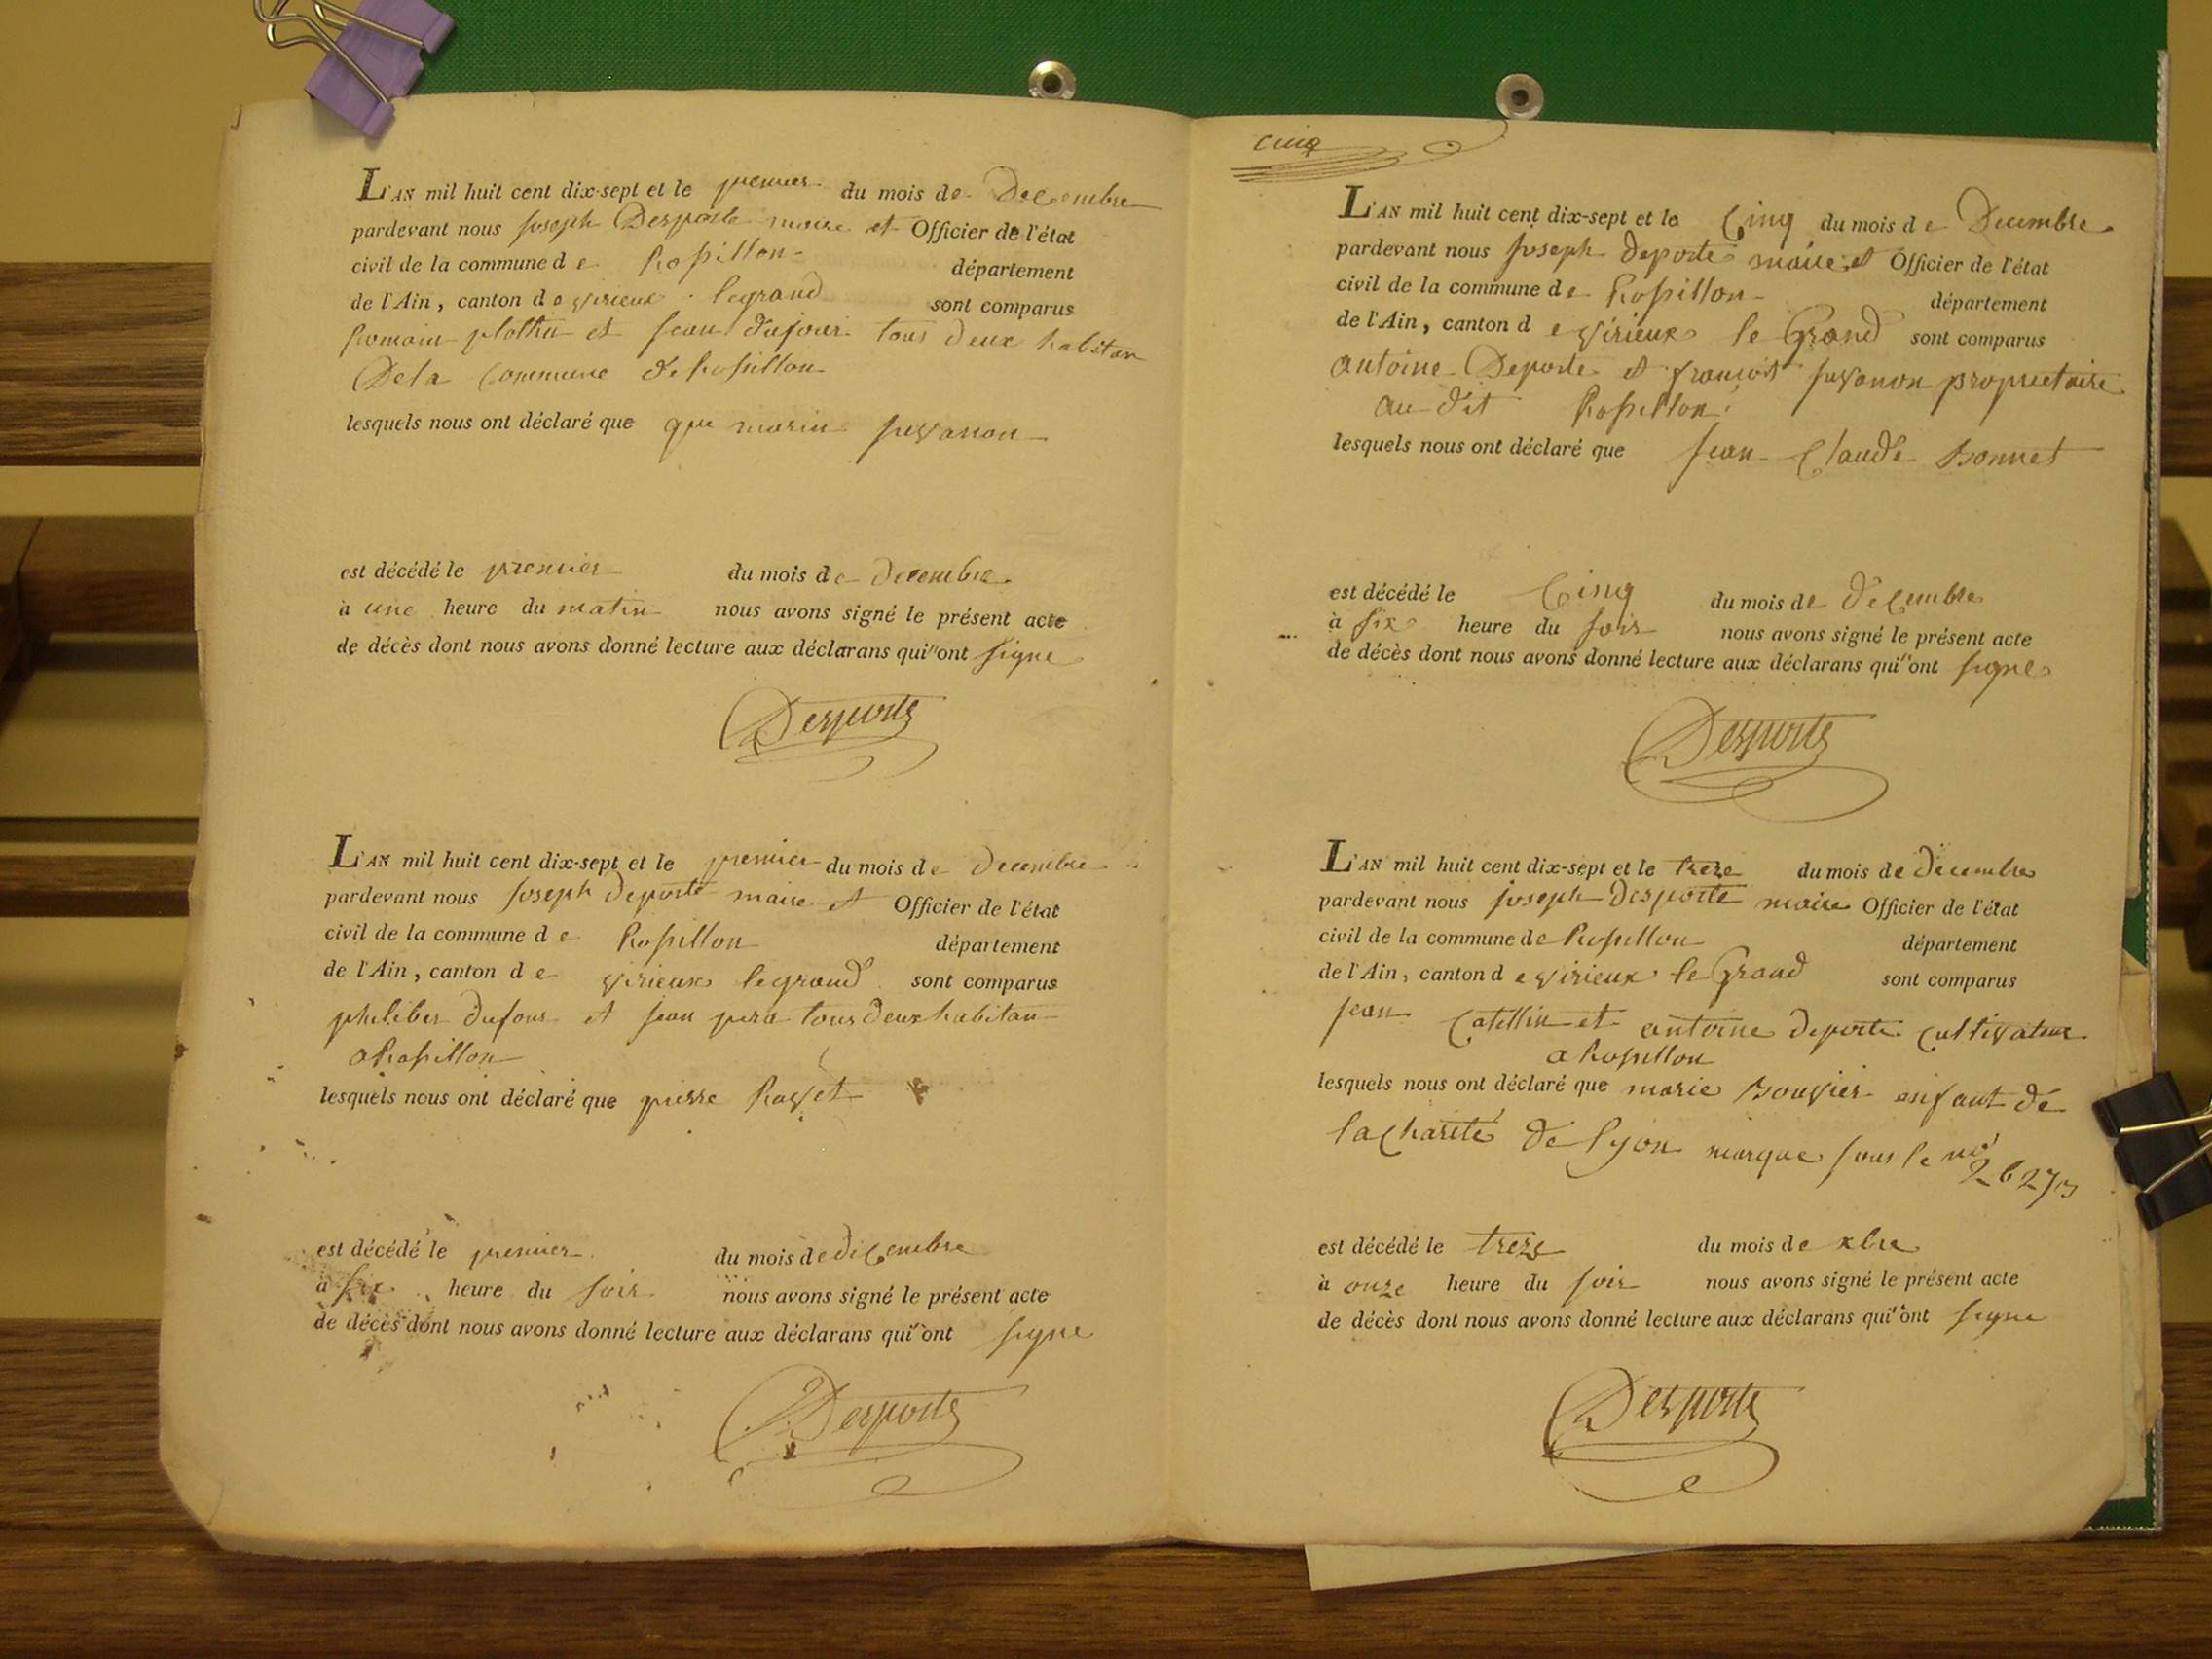 L'AN mil huit cent dix-sept et le premier du mois de Decembre
pardevant nous joseph Desporte maire et Officier de l'état
civil de la commune de Rossillon département
de l'Ain, canton de virieux legrand sont comparus
Romain plottin et jean dufour tous deux habitan
De la Commune de Rossillon
lesquels nous ont déclaré que que marin juvanon
est décédé le premier du mois de decembre
à une heure du matin nous avons signé le présent acte
de décès dont nous avons donné lecture aux déclarans qui ont signe
Desporte
L'AN mil huit cent dix-sept et le premier du mois de decembre
pardevant nous joseph deporte maire et Officier de l'état
civil de la commune de Rossillon département
de l'Ain, canton de virieux legrand sont comparus
philiber dufour et jean pera tous deux habitan
a Rossillon
lesquels nous ont déclaré que pierre Ravet
est décédé le premier du mois de decembre
à six heure du soir nous avons signé le présent acte
de décès dont nous avons donné lecture aux déclarans qui ont signe
Desporte
cinq
L'AN mil huit cent dix-sept et le Cinq du mois de Decembre
pardevant nous joseph deporte maire et Officier de l'état
civil de la commune de Rossillon département
de l'Ain, canton de virieux le Grand sont comparus
antoine Deporte et francois juvanon proprietaire
au dit Rossillon
lesquels nous ont déclaré que jean Claude Bonnet
est décédé le Cinq du mois de decembre
à six heure du soir nous avons signé le présent acte
de décès dont nous avons donné lecture aux déclarans qui ont signe
Desporte
L'AN mil huit cent dix-sept et le treze du mois de decembre
pardevant nous joseph Desporte maire Officier de l'état
civil de la commune de Rossillon département
de l'Ain, canton de virieux le Grand sont comparus
jean Catellin et antoine deporte cultivateur
a Rossillon
lesquels nous ont déclaré que marie Bouvier enfant de
la charité de lyon marque sous le no
26273
est décédé le treze du mois de xbre
à onze heure du soir nous avons signé le présent acte
de décès dont nous avons donné lecture aux déclarans qui ont signe
Desporte